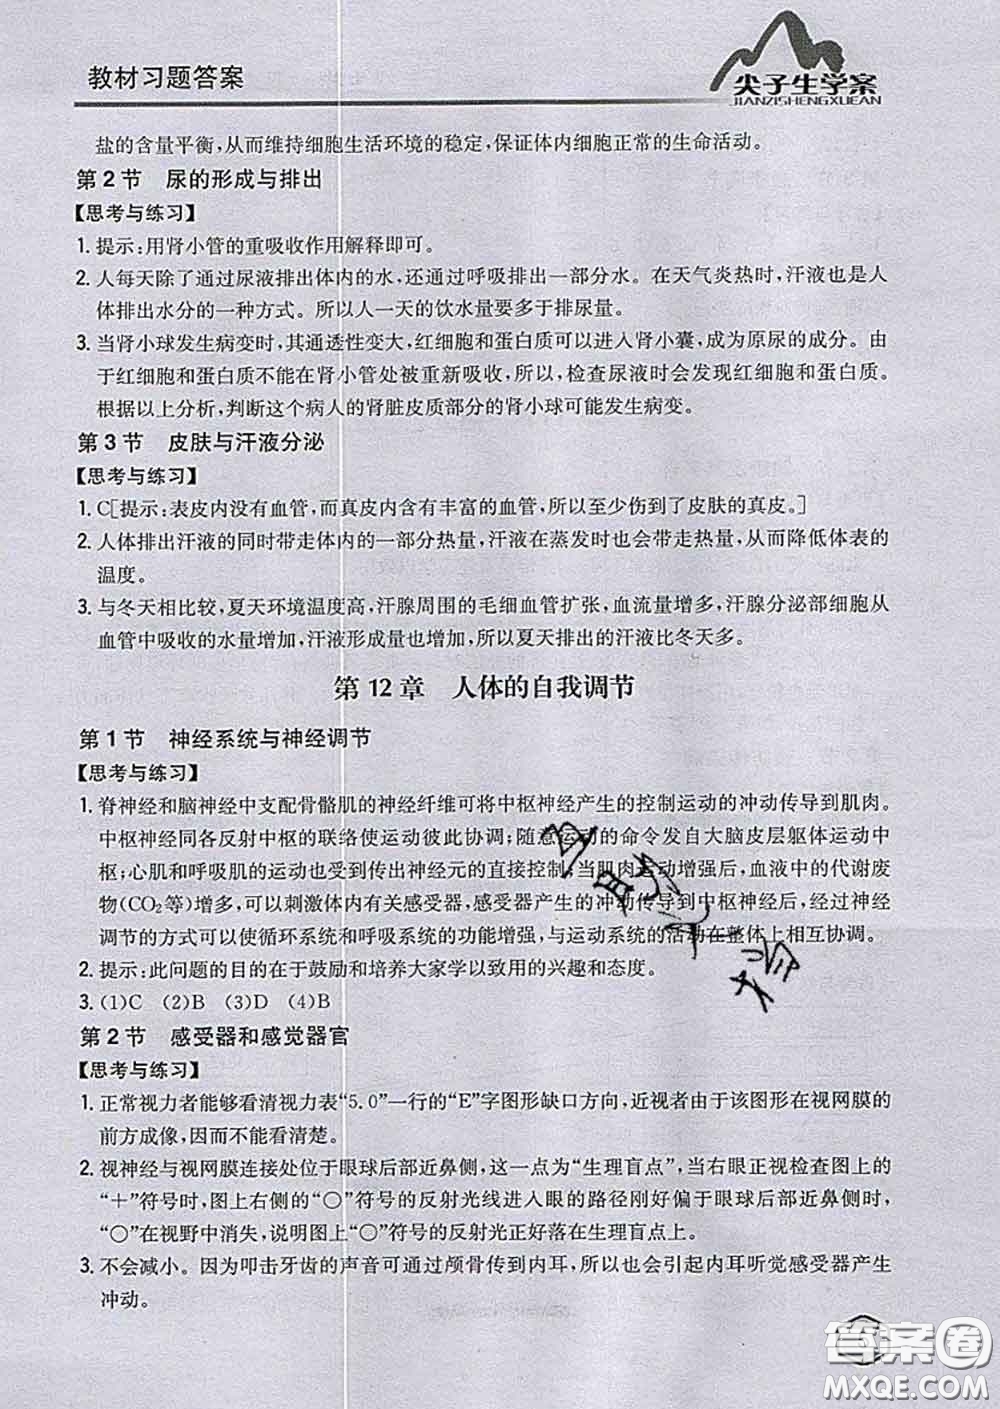 教材习题答案
尖子生学案
JIANZISHENGXUEAN
盐的含量平衡,从而维持细胞生活环境的稳定,保证体内细胞正常的生命活动。
第2节 尿的形成与排出
【思考与练习】
1. 提示:用肾小管的重吸收作用解释即可。
2. 人每天除了通过尿液排出体内的水,还通过呼吸排出一部分水。在天气炎热时,汗液也是人
体排出水分的一种方式。所以人一天的饮水量要多于排尿量。
3. 当肾小球发生病变时,其通透性变大,红细胞和蛋白质可以进入肾小囊,成为原尿的成分。由
于红细胞和蛋白质不能在肾小管处被重新吸收,所以,检查尿液时会发现红细胞和蛋白质。
根据以上分析,判断这个病人的肾脏皮质部分的肾小球可能发生病变。
第3节 皮肤与汗液分泌
【思考与练习】
1. C[提示:表皮内没有血管,而真皮内含有丰富的血管,所以至少伤到了皮肤的真皮。]
2. 人体排出汗液的同时带走体内的一部分热量,汗液在蒸发时也会带走热量,从而降低体表的
温度。
3. 与冬天相比较,夏天环境温度高,汗腺周围的毛细血管扩张,血流量增多,汗腺分泌部细胞从
血管中吸收的水量增加,汗液形成量也增加,所以夏天排出的汗液比冬天多。
第12章 人体的自我调节
第1节 神经系统与神经调节
【思考与练习】
1. 脊神经和脑神经中支配骨骼肌的神经纤维可将中枢神经产生的控制运动的冲动传导到肌肉。
中枢神经同各反射中枢的联络使运动彼此协调;随意运动的命令发自大脑皮层躯体运动中
枢;心肌和呼吸肌的运动也受到传出神经元的直接控制,当肌肉运动增强后,血液中的代谢废
物(CO₂等)增多,可以刺激体内有关感受器,感受器产生的冲动传导到中枢神经后,经过神经
调节的方式可以使循环系统和呼吸系统的功能增强,与运动系统的活动在整体上相互协调。
2. 提示:此问题的目的在于鼓励和培养大家学以致用的兴趣和态度。
3. (1)C (2)B (3)D (4)B
第2节 感受器和感觉器官
【思考与练习】
1. 正常视力者能够看清视力表“5.0”一行的“E”字图形缺口方向,近视者由于该图形在视网膜的
前方成像,因而不能看清楚。
2. 视神经与视网膜连接处位于眼球后部近鼻侧,这一点为“生理盲点”,当右眼正视检查图上的
“+”符号时,图上右侧的“○”符号的反射光线进入眼的路径刚好偏于眼球后部近鼻侧时,
“○”在视野中消失,说明图上“○”符号的反射光正好落在生理盲点上。
3. 不会减小。因为叩击牙齿的声音可通过颅骨传到内耳,所以也会引起内耳听觉感受器产生
冲动。
答案圈
MXQE.COM